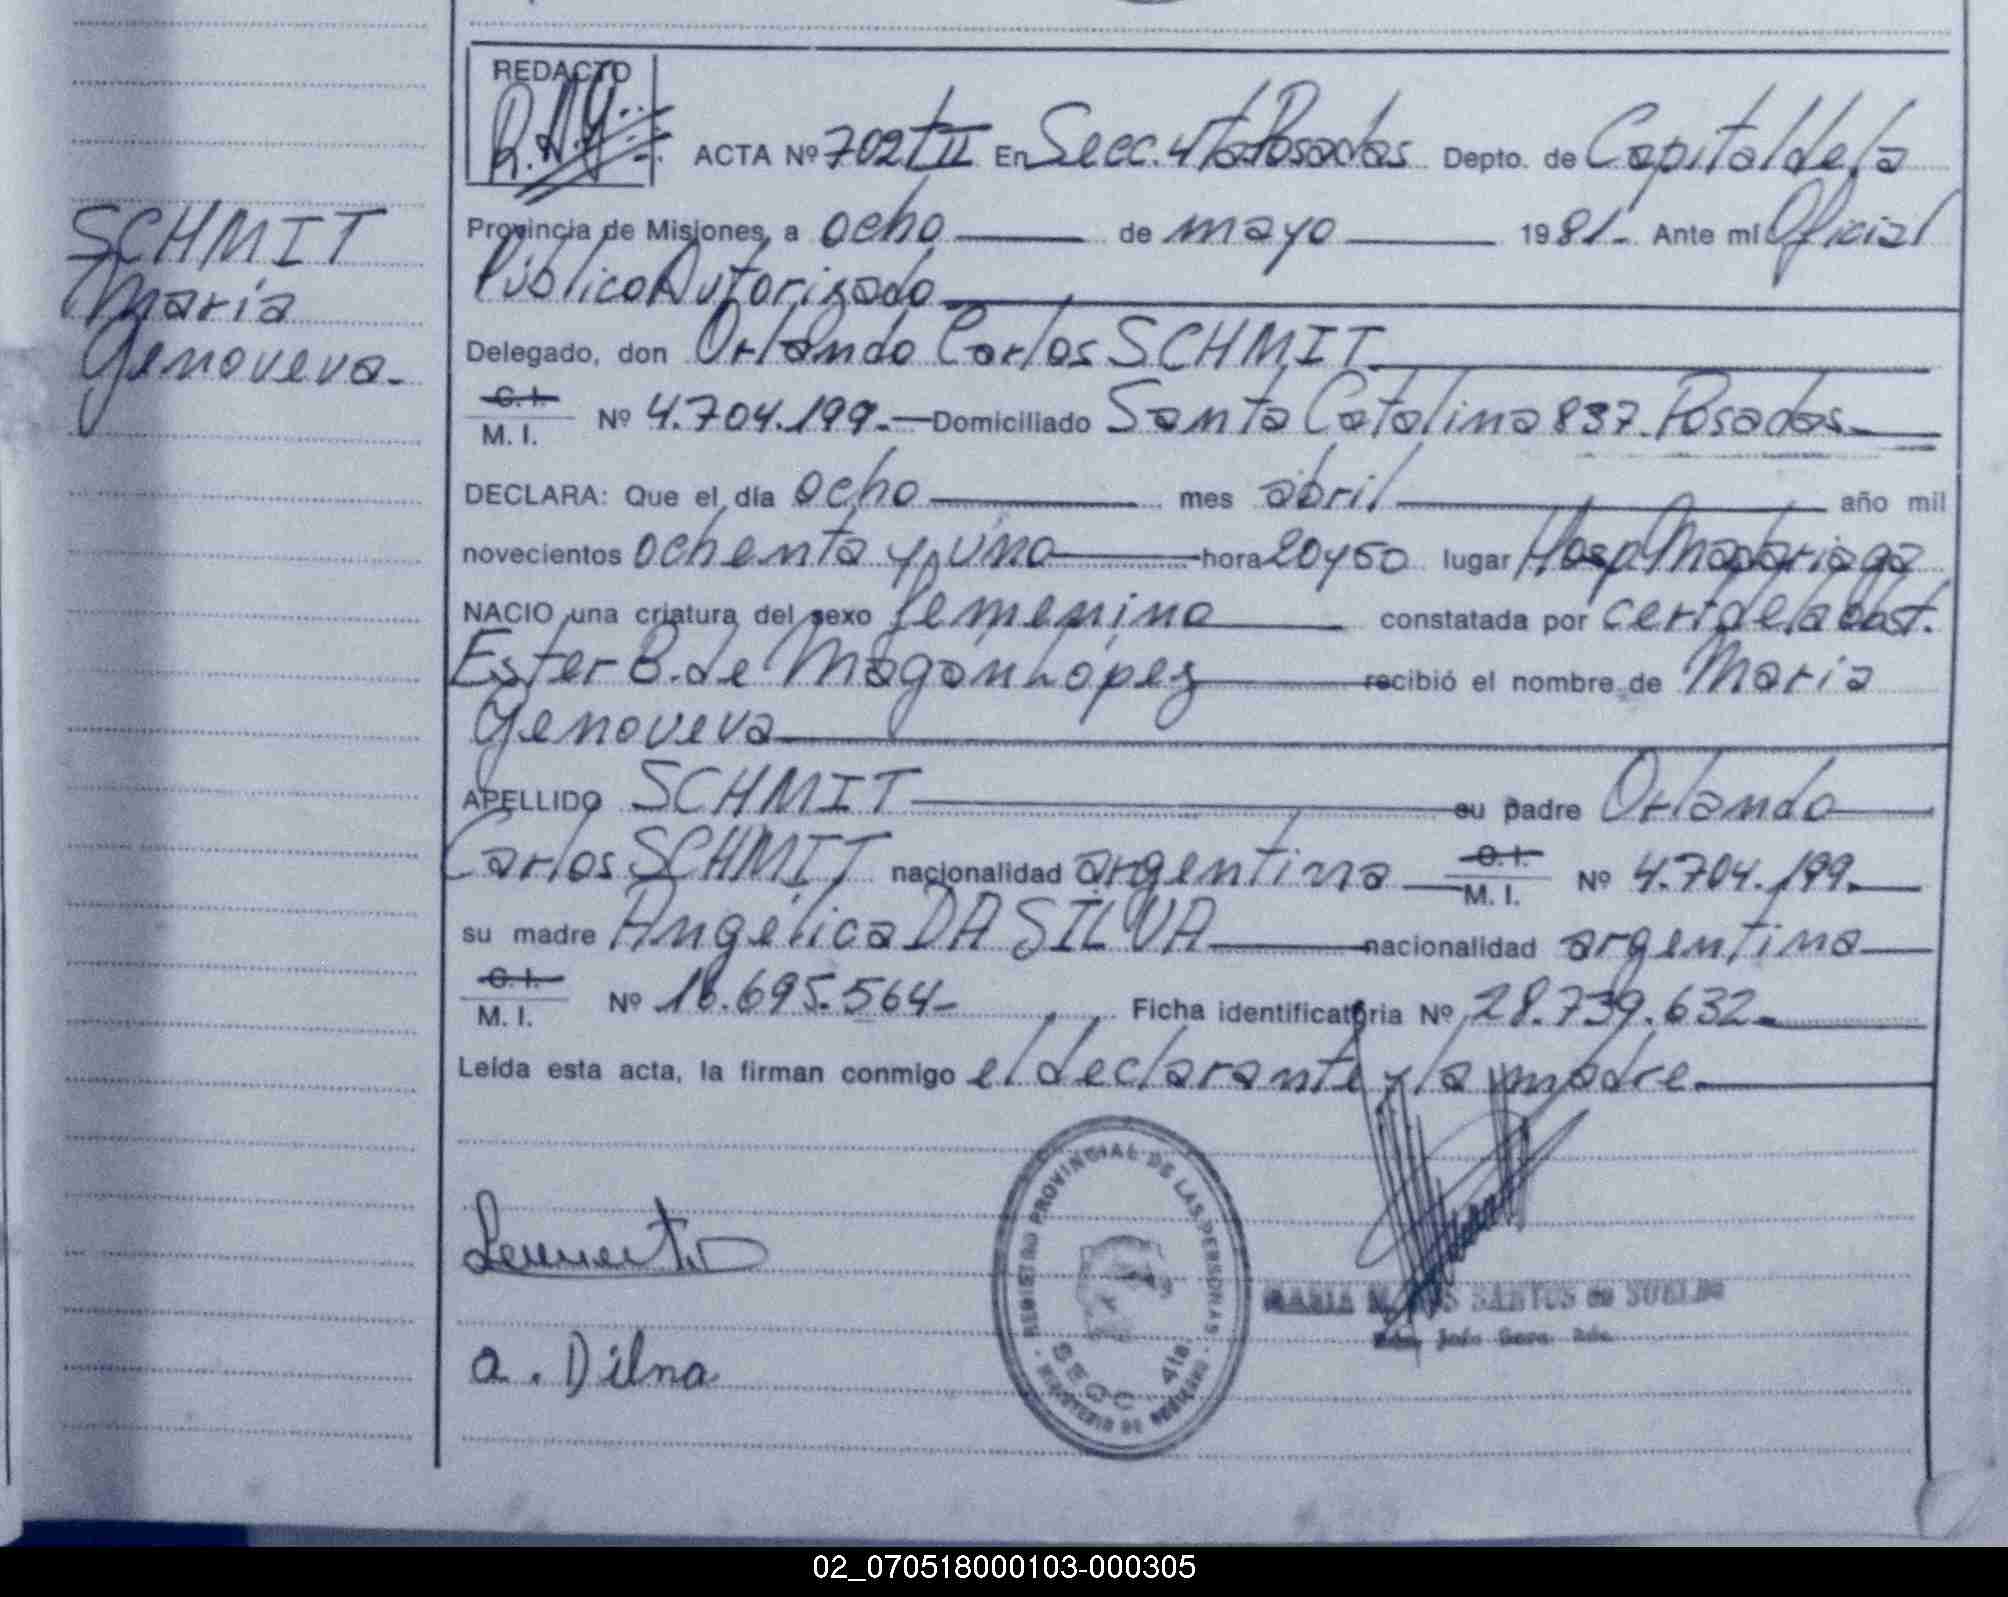 REDACTO
R.A.G.
ACTA Nº 702 t II En Secc. 4ta Posadas Depto. de Capital de la
SCHMIT
Provincia de Misiones, a ocho de mayo 1981.- Ante mí Oficial
María
Público Autorizado
Genoveva.-
Delegado, don Orlando Carlos SCHMIT
C. I.
M. I. Nº 4.704.199.- Domiciliado Santa Catalina 837. Posadas.-
DECLARA: Que el día ocho mes abril año mil
novecientos ochenta y uno hora 20 y 50 lugar Hosp. Madariaga
NACIO una criatura del sexo femenino constatada por cert. de la obst.
Ester B. de Magan López recibió el nombre de María
Genoveva
APELLIDO SCHMIT su padre Orlando
Carlos SCHMIT nacionalidad argentina C. I. M. I. Nº 4.704.199.-
su madre Angélica DA SILVA nacionalidad argentina
C. I.
M. I. Nº 16.695.564- Ficha identificatoria Nº 28.739.632.-
Leída esta acta, la firman conmigo el declarante y la madre.
REGISTRO PROVINCIAL DE LAS PERSONAS
SECC. 4ta.
MINISTERIO DE GOBIERNO
MARIA SANTOS de SUELDO
a. Dilna
02_070518000103-000305